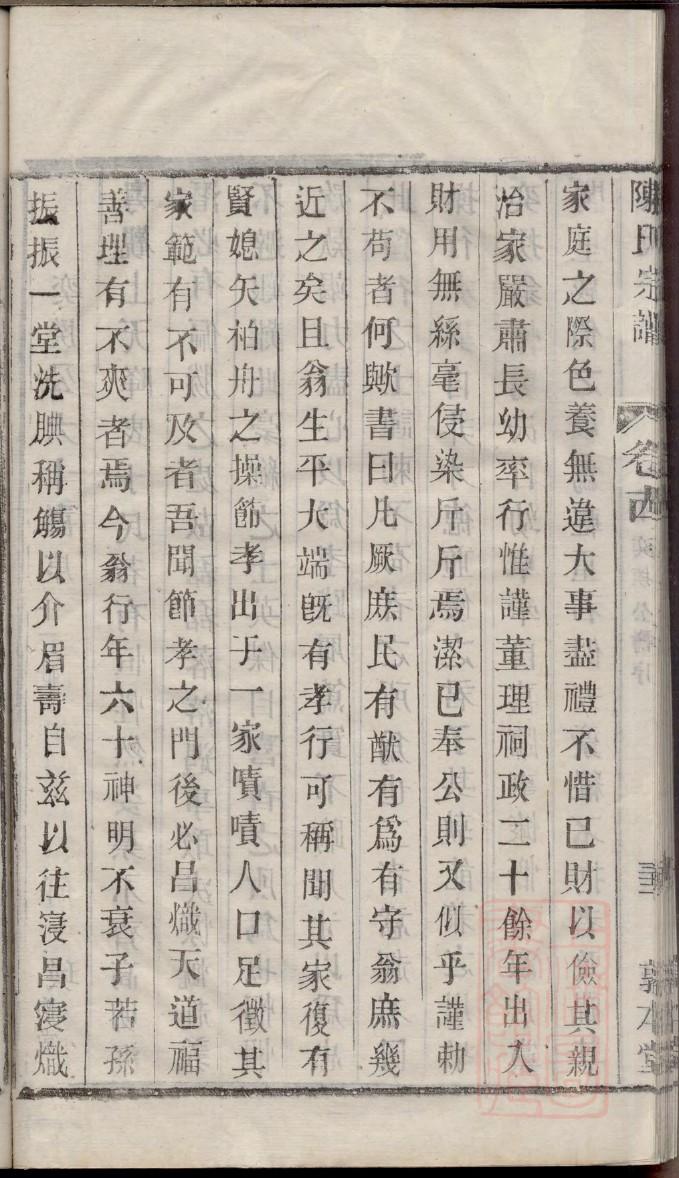 陳氏宗譜 卷四 敦本堂
家庭之際色養無違大事盡禮不惜已財以儉其親
治家嚴肅長幼率行惟謹董理祠政二十餘年出入
財用無絲毫侵染斤斤焉潔已奉公則又似乎謹勅
不苟者何歟書曰凡厥庶民有猷有為有守翁庶幾
近之矣且翁生平大端旣有孝行可稱聞其家復有
賢媳矢柏舟之操節孝出于一家嘖嘖人口足徵其
家範有不可及者吾聞節孝之門後必昌熾天道福
善理有不爽者焉今翁行年六十神明不衰子若孫
振振一堂洗腆稱觴以介眉壽自兹以往寖昌寖熾